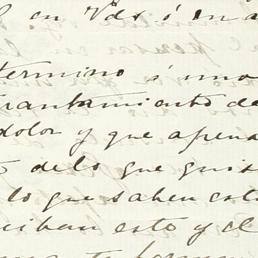 en Vds ó en a
termino ó una
trantamiento de
dolor y que apena
de lo que quis
lo que saben est
ciban esto y el